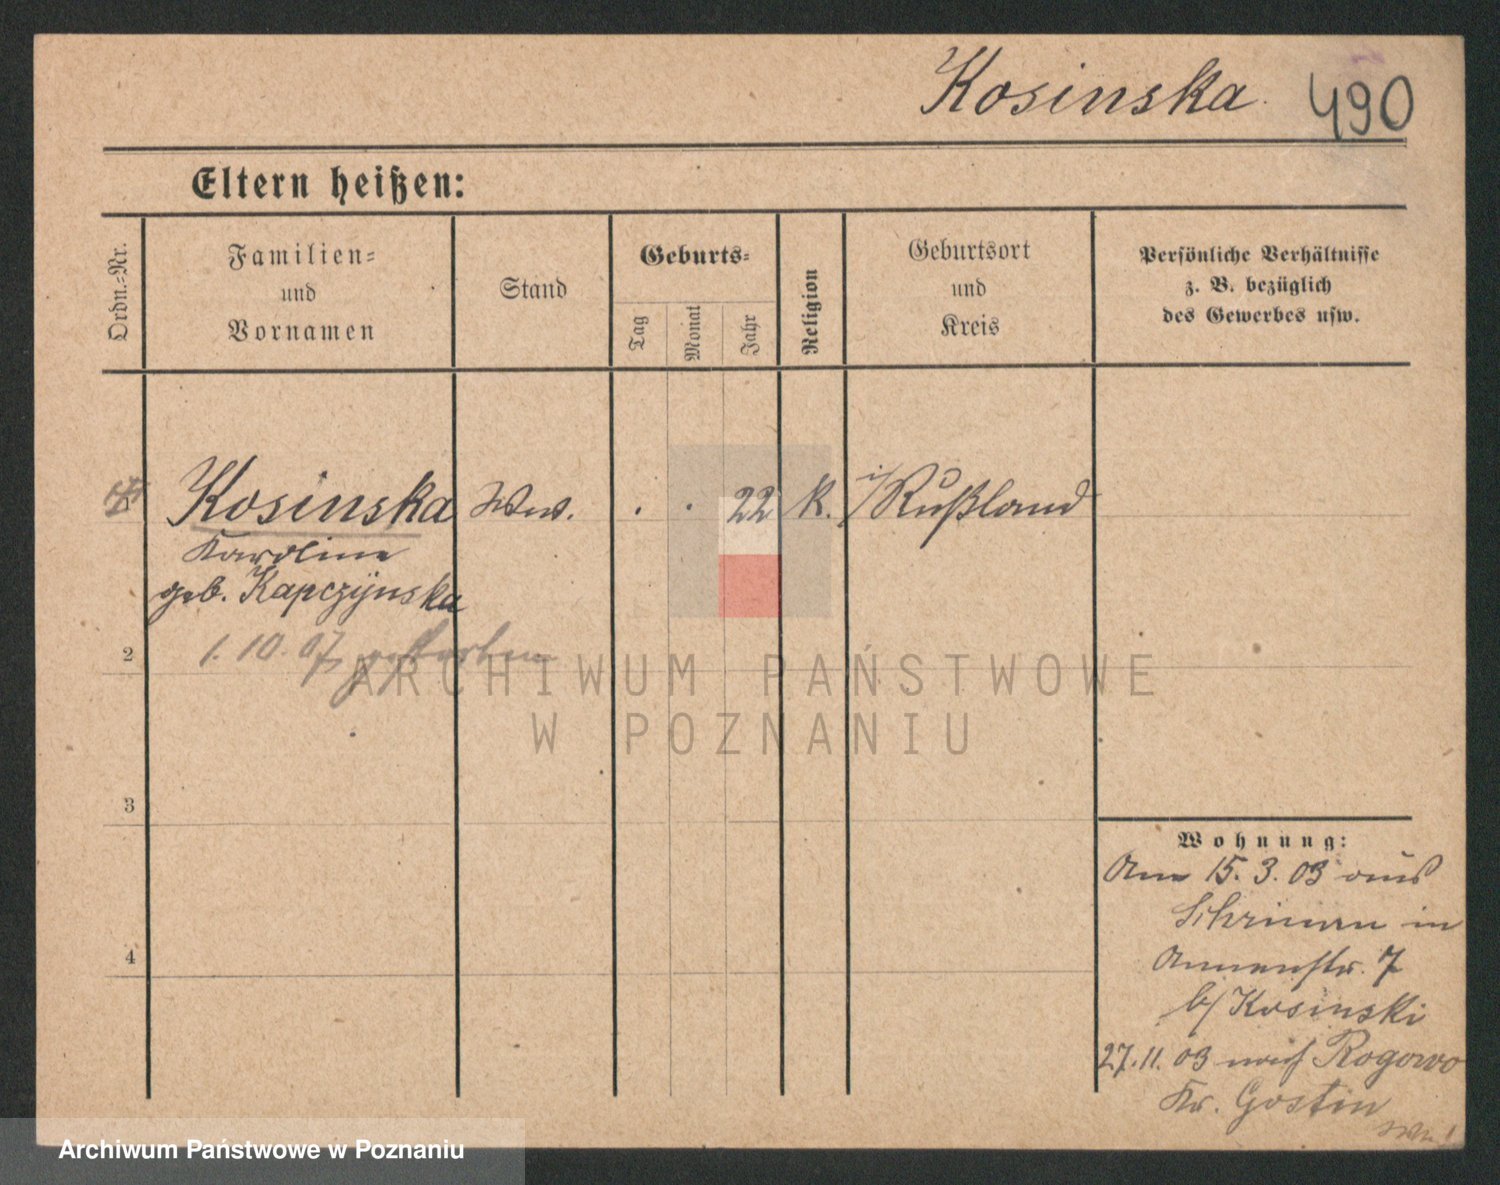 Kosinska.
490
Eltern heißen:
Ordn.-Nr.
Familien-
und
Vornamen
Stand
Geburts-
Tag
Monat
Jahr
Religion
Geburtsort
und
Kreis
Persönliche Verhältnisse
z. B. bezüglich
des Gewerbes usw.
Kosinska Ww. . . 22 k. i/Rußland
Karoline
geb. Kapczynska
1. 10. 07 gestorben
2
3
4
Wohnung:
Am 15. 3. 03 aus
Schrimm in
Annenstr. 7
b/ Kosinski
27. 11. 03 nach Rogowo
Kr. Gostin
ARCHIWUM PAŃSTWOWE
W POZNANIU
Archiwum Państwowe w Poznaniu